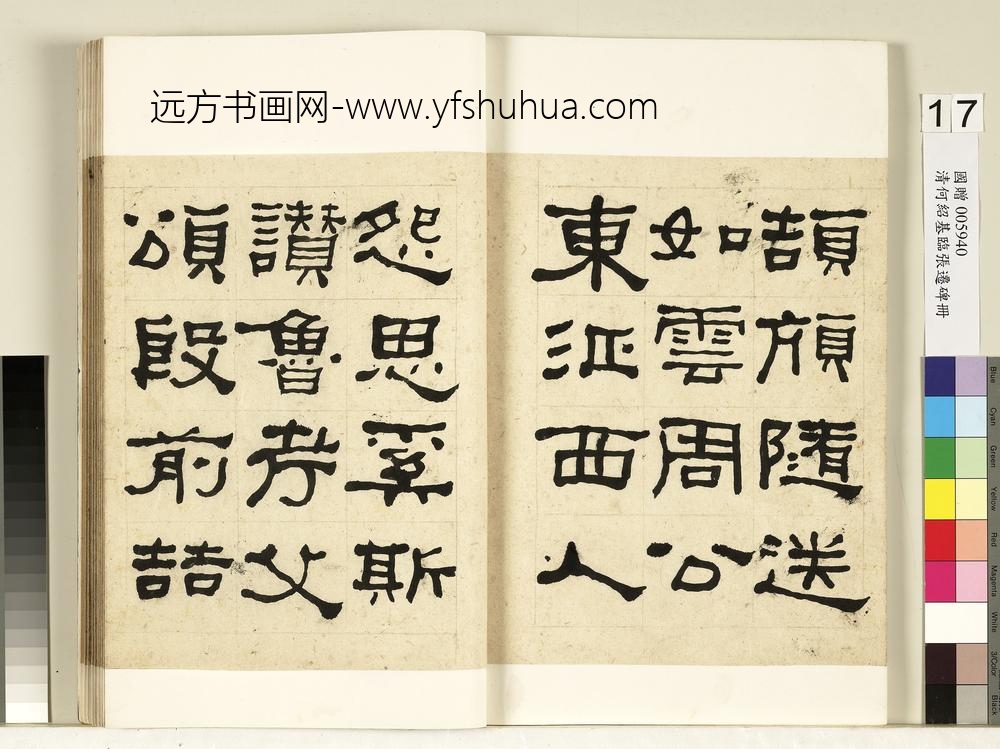 远方书画网-www.yfshuhua.com
17
國贈 005940
清何紹基臨張遷碑冊
頡頏隨送
如雲周公
東征西人
怨思奚斯
讃魯考父
頌殷前喆
Blue
Cyan
Green
Yellow
Red
Magenta
White
3/Color
Black